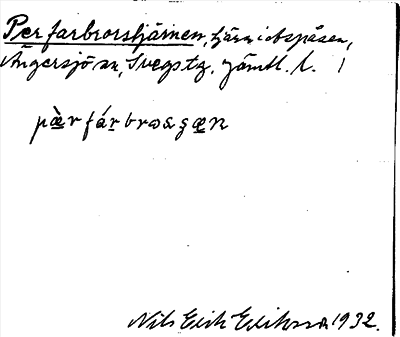 Per farbrorstjärnen, tjärn i obspåsen,
Ängersjö sn, Svegs tg. Jämtl. l. 1
pæ̀r fár brosʂæɳ
Nils Erik Eriksson 1932.